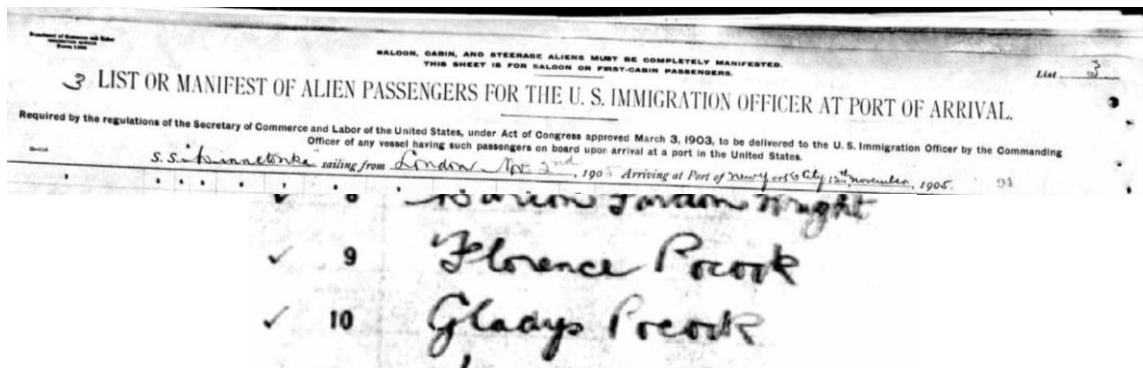 Department of Commerce and Labor
IMMIGRATION SERVICE
SALOON, CABIN, AND STEERAGE ALIENS MUST BE COMPLETELY MANIFESTED.
THIS SHEET IS FOR SALOON OR FIRST-CABIN PASSENGERS.
List 3
3 LIST OR MANIFEST OF ALIEN PASSENGERS FOR THE U. S. IMMIGRATION OFFICER AT PORT OF ARRIVAL.
Required by the regulations of the Secretary of Commerce and Labor of the United States, under Act of Congress approved March 3, 1903, to be delivered to the U. S. Immigration Officer by the Commanding
Officer of any vessel having such passengers on board upon arrival at a port in the United States.
S. S. "Minnetonka" sailing from London Nov 2nd, 1905 Arriving at Port of New York City 12th November, 1905.
8 Gordon Wright
9 Florence Pocock
10 Gladys Pocock